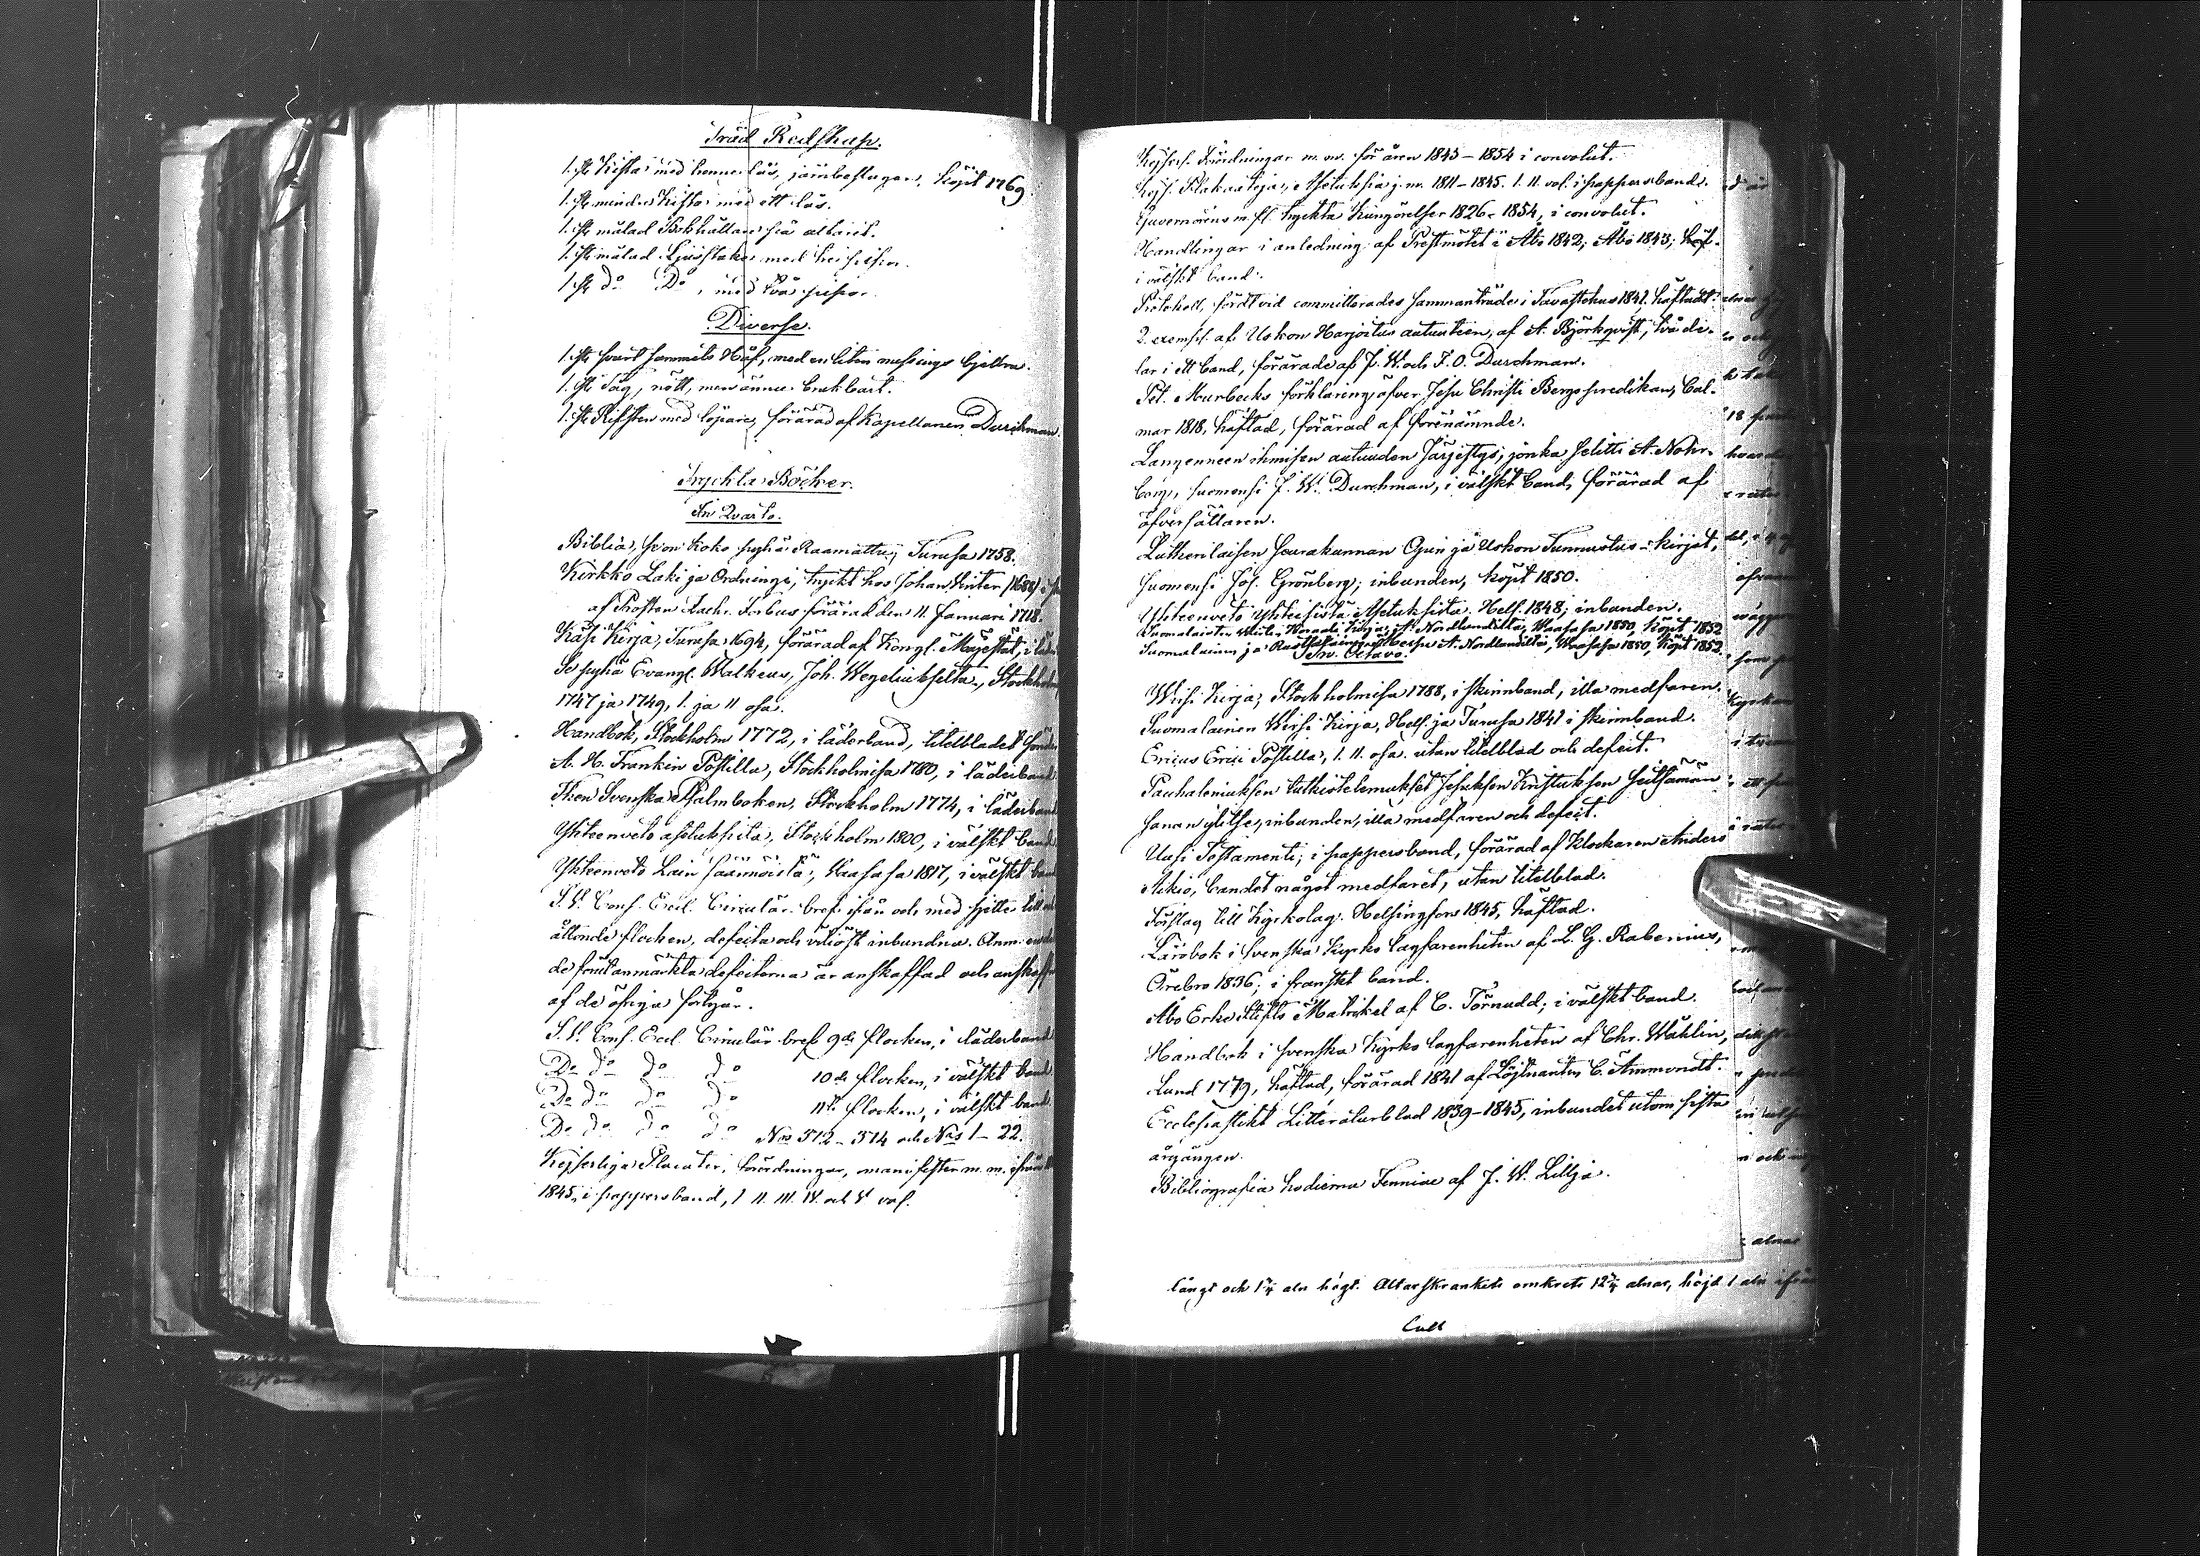 Träd Redskap.
1. st. Kista med henne lås, järnbeslagen, köpt 1769
1. st. mindre Kista med ett lås.
1. st. målad Bokhållare för altaret.
1. st. målad Ljusstake med tre pipor.
1. st. do Do, med två pipor.
Diverse.
1. st. svart sammets Håf, med en liten messings bjellra.
1. st. Såg, nött, men ännu brukbart.
1. st. Rifsten med löpare, förärad af Kapellanen Durchman.
Tryckta Böcker.
In Quarto.
Biblia, se on koko pyhä Raamattu, Turusa 1758.
Kirkko Laki ja Ordningi, tryckt hos Johan Winter 1688,
af Prosten Zach. Forbus förärad den 11. Januari 1718.
Käsi Kirja, Turusa 1694, förärad af Kongl. Majestät, i
Se pyhä Evangl. Matheus, Joh. Wegeliukselta, Stockholm
1747 ja 1749, 1. ja 11 osa.
Handbok, Stockholm 1772, i läderband, titelbladet
A. H. Franken Postilla, Stockholmisa 1780, i läderband
Then Svenska Psalmboken, Stockholm 1774, i läderband
Yhteenveto asetuksista, Stockholm 1800, i välskt band
Yhteenveto Lain säännöistä, Waasasa 1817, i välskt
S. V. Cons. Eccl. Circulär bref ifrån och med sjette till
åttonde flocken, defecta och vitiöst inbundna. Anm.
de förut anmärkta defecterna är anskaffad och
af de öfriga förtgår.
S. V. Cons. Eccl. Circulär bref 9de flocken, i läderband
Do do do do 10de flocken, i välskt band
Do do do do 11te flocken, i välskt band
Do do do do Nris 512 - 514 och Nris 1 - 22.
Kejserliga Placater, förordningar, manifester m. m. ifrån
1845, i pappersband, 1 II. III. IV. och V vol.
Kejserl. Förordningar m. m. för åren 1845 - 1854 i convolut.
Kejs. Plakateja, Asetuksia j. m. 1811 - 1845. 1. 11. vol. i pappersband.
Guvernörens m. fl. tryckta Kungörelser 1826 - 1854, i convolut.
Handlingar i anledning af Prestmötet i Åbo 1842; Åbo 1843;
i välskt band.
Protokoll, fördt vid committerades sammanträde i Tavastehus 1841. häftadt.
2. exempl. af Uskon Harjoitus autuuteen, af A. Björkqvist, två de-
lar i ett band, förärade af J. W. och F. O. Durchman.
Pet. Murbecks förklaring öfver Jesu Christi Bergspredikan, Cal-
mar 1818, häftad, förärad af förenämnde.
Langenneen ihmisen autuuden Järjestys; jonka selitti A. Nohr-
borg, suomensi J. W. Durchman, i välskt band, förärad af
öfversättaren.
Lutherilaisen Seurakunnan Opin ja Uskon Tunnustus-kirjat,
suomensi Joh. Grönberg; inbunden, köpt 1850.
Yhteenveto Yhteisistä Asetuksista. Hels. 1848; inbunden.
A. Nordlundilta, Waasasa 1850, köpt 1852
Suomalainen ja A. Nordlundilta, Waasasa 1850, köpt 1852.
In Octavo.
Wirsi Kirja; Stockholmisa 1788, i skinnband, illa medfaren.
Suomalainen Wirsi Kirja, Hels. ja Turusa 1841 i skinnband.
Ericus Erici Postilla, 1. 11. osa. utan titelblad och defect.
Pauhaleniuksen tutkistelemukset Jesuksen Kristuksen seitsämän
sanan ylitse, inbunden, illa medfaren och defect.
Uusi Testamenti; i pappersband, förärad af Klockaren Anders
Askio, bandet något medfaret, utan titelblad.
Förslag till Kyrkolag. Helsingfors 1845, häftad.
Lärobok i Svenska Kyrko lagfarenheten af L. G. Rabenius,
Örebro 1836; i franskt band.
Åbo Erke Stifts Matrikel af C. Törnudd; i välskt band.
Handbok i Svenska Kyrko lagfarenheten af Chr. Wåhlin,
Lund 1779, häftad, förärad 1841 af Löjtnanten C. Ammondt.
Ecclesiastikt Litteraturblad 1839 - 1845, inbundet utom sista
årgången.
Bibliografia hodierna Fenniae af J. W. Lillja.
långt och 1¾ aln högt. Altarskrankets omkrets 12¾ alnar, höjd 1 aln